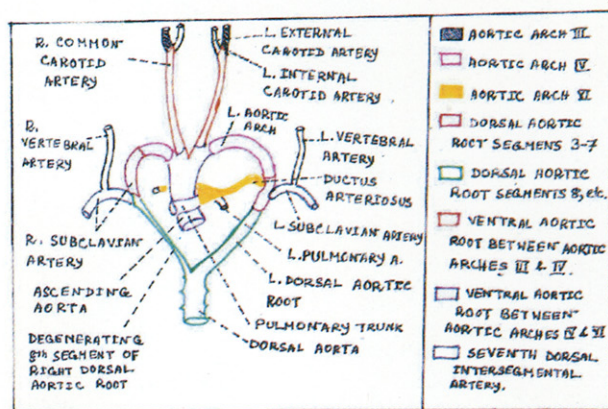 R. COMMON
CAROTID
ARTERY
L. EXTERNAL
CAROTID ARTERY
L. INTERNAL
CAROTID ARTERY
L. AORTIC
ARCH
R.
VERTEBRAL
ARTERY
L. VERTEBRAL
ARTERY
DUCTUS
ARTERIOSUS
L. SUBCLAVIAN ARTERY
R. SUBCLAVIAN
ARTERY
L. PULMONARY A.
L. DORSAL AORTIC
ROOT
ASCENDING
AORTA
PULMONARY TRUNK
DEGENERATING
8th SEGMENT OF
RIGHT DORSAL
AORTIC ROOT
DORSAL AORTA
AORTIC ARCH III
AORTIC ARCH IV
AORTIC ARCH VI
DORSAL AORTIC
ROOT SEGMENS 3-7
DORSAL AORTIC
ROOT SEGMENTS 8, etc.
VENTRAL AORTIC
ROOT BETWEEN AORTIC
ARCHES III & IV.
VENTRAL AORTIC
ROOT BETWEEN
AORTIC ARCHES IV & VI
SEVENTH DORSAL
INTERSEGMENTAL
ARTERY.